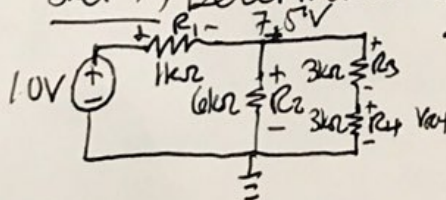 + R1 -
7.5V
10V
+
-
1kΩ
6kΩ
+
R2
-
3kΩ
+
R3
-
3kΩ
+
R4
-